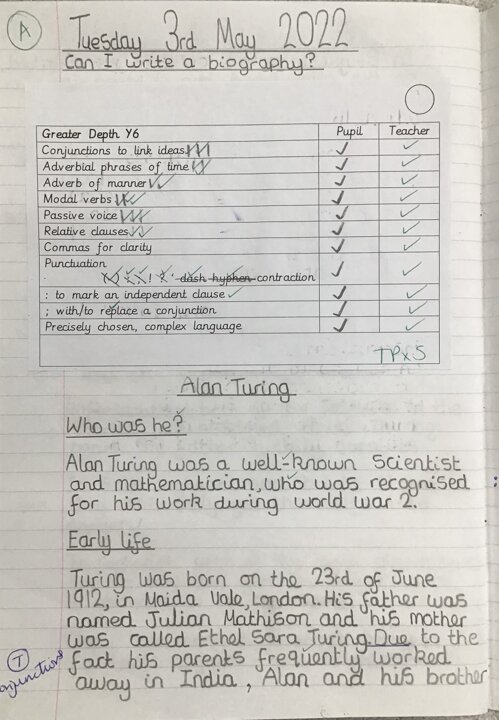 A
Tuesday 3rd May 2022
Can I write a biography?
Greater Depth Y6 Pupil Teacher
Conjunctions to link ideas
Adverbial phrases of time
Adverb of manner
Modal verbs
Passive voice
Relative clauses
Commas for clarity
Punctuation
dash hyphen contraction
: to mark an independent clause
; with/to replace a conjunction
Precisely chosen, complex language
TPx5
Alan Turing
Who was he?
Alan Turing was a well-known Scientist
and mathematician, who was recognised
for his work during world war 2.
Early life
Turing was born on the 23rd of June
1912, in Maida Vale, London. His father was
named Julian Mathison and his mother
was called Ethel Sara Turing. Due to the
T fact his parents frequently worked
conjunctions away in India, Alan and his brother